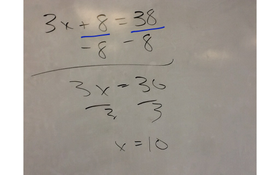 3x + 8 = 38
- 8 - 8
3x = 30
3 3
x = 10